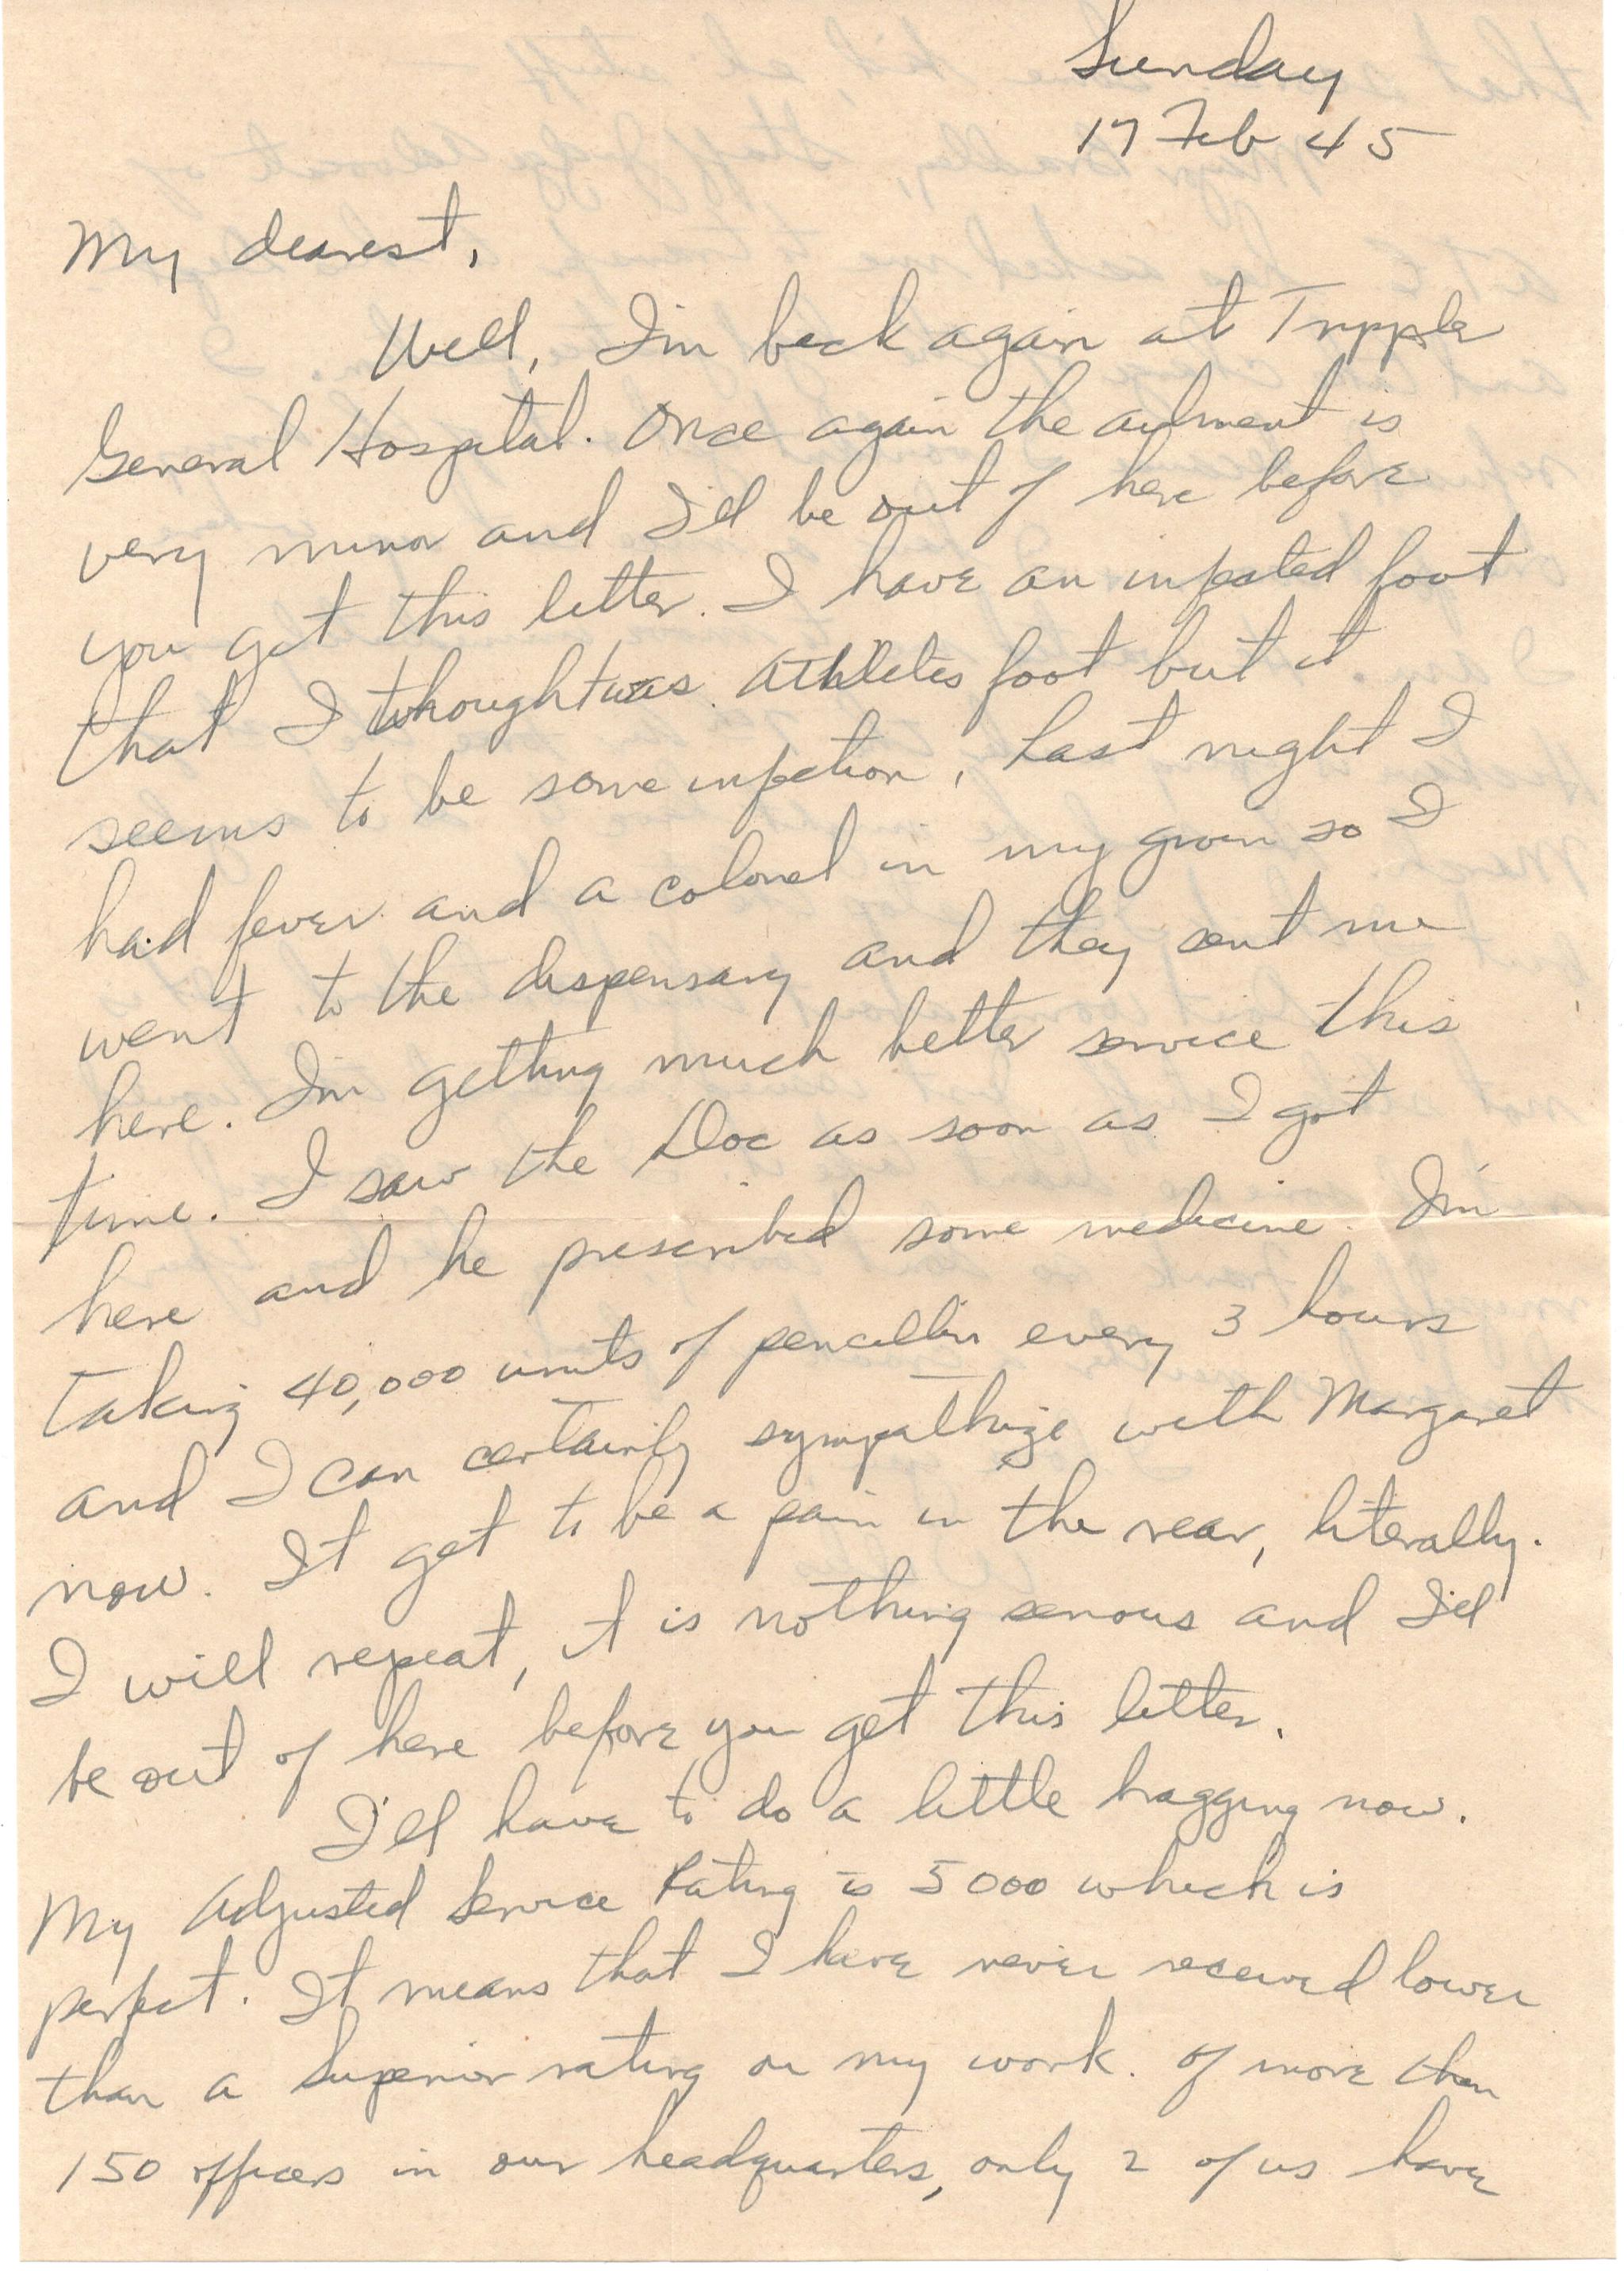 Sunday
17 Feb 45
My dearest,
Well, I'm back again at Tripple
General Hospital. Once again the ailment is
very minor and I'll be out of here before
you get this letter. I have an infected foot
that I thought was athletes foot but it
seems to be some infection, Last night I
had fever and a colonel in my groin so I
went to the dispensary and they sent me
here. I'm getting much better service this
time. I saw the Doc as soon as I got
here and he prescribed some medicine. I'm
taking 40,000 units of pencillin every 3 hours
and I can certainly sympathize with Margaret
now. It get to be a pain in the rear, literally.
I will repeat, it is nothing serious and I'll
be out of here before you get this letter.
I'll have to do a little bragging now.
My Adjusted Service Rating is 5000 which is
perfect. It means that I have never received lower
than a Superior rating on my work. Of more than
150 officers in our headquarters, only 2 of us have